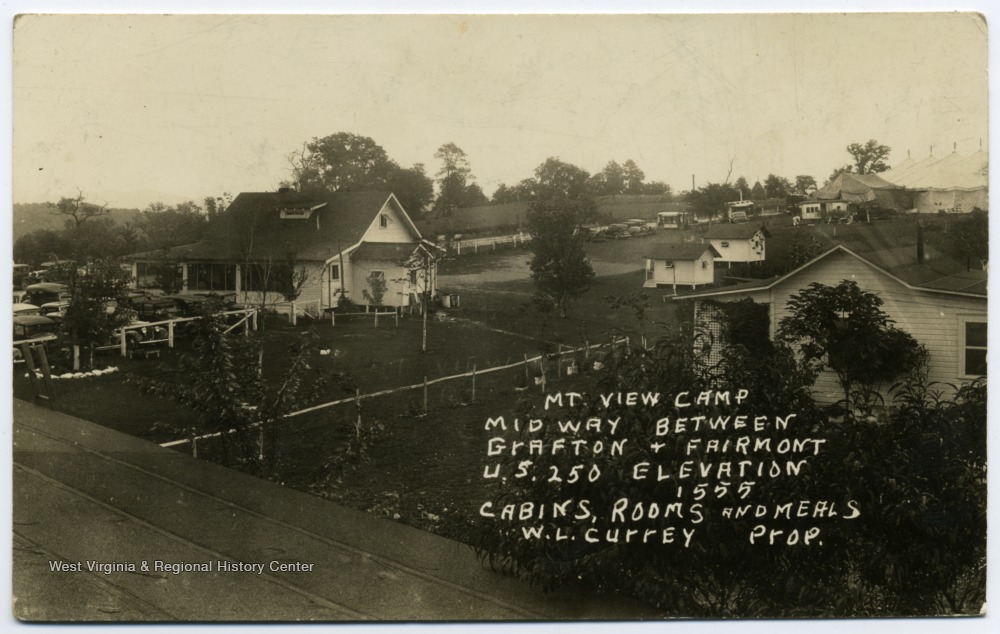 MT. VIEW CAMP
MIDWAY BETWEEN
GrAFTON + FAIRMONT
U.S. 250 ELEVATION
1555
CABINS, ROOMS AND MEALS
W.L. CUrrEY ProP.
West Virginia & Regional History Center